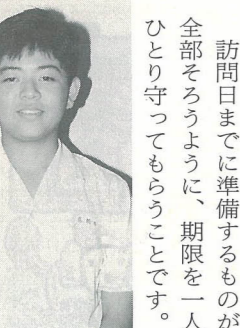 訪問日までに準備するものが
全部そろうように、期限を一人
ひとり守ってもらうことです。